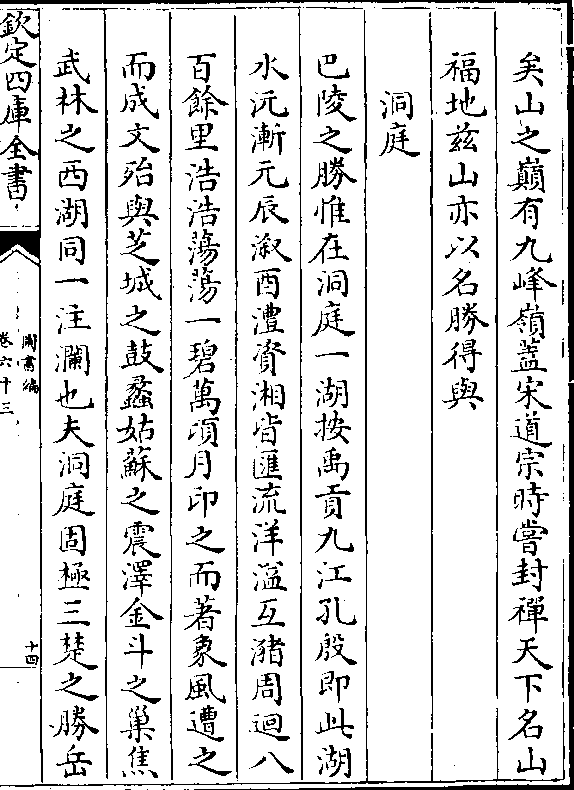 矣山之巔有九峰嶺蓋宋道宗時嘗封禪天下名山
福地兹山亦以名勝得與
洞庭
巴陵之勝惟在洞庭一湖按禹貢九江孔殷即此湖
水沅漸元辰溆酉澧資湘皆匯流洋溢互瀦周廻八
百餘里浩浩蕩蕩一碧萬頃月印之而著象風遭之
而成文殆與芝城之鼓蠡姑蘇之震澤金斗之巢焦
武林之西湖同一注瀾也夫洞庭固極三楚之勝岳
欽定四庫全書
圖書編
卷六十三
十四